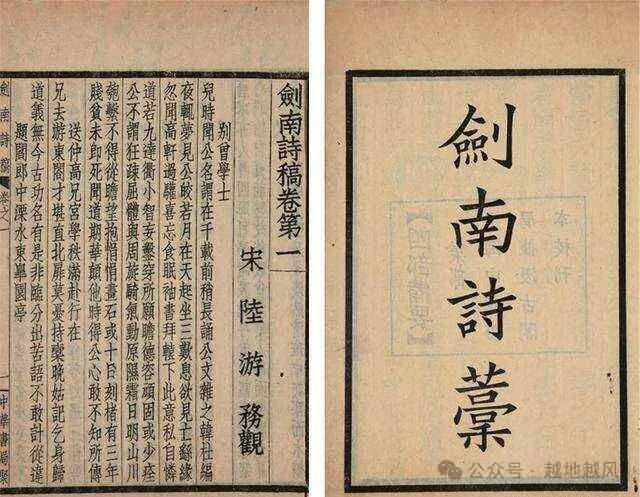 劍南詩藁
劍南詩稿卷第一
宋 陸 游 務觀
別曾學士
兒時聞公名謂在千載前稍長誦公文雜之韓杜編
夜輒夢見公皎若月在天起坐三歎息欲見亡繇緣
忽聞高軒過驩喜忘食眠袖書拜轅下此意私自憐
道若九達衢小智妄鑿穿所願瞻德容頑固或少痊
公不謂狂疎屈體與周旋騎氣動原隰霜日明山川
匏繫不得從瞻望抱悁悁畫石或十日刻楮有三年
賤貧未即死聞道期華顛他時得公心敢不知所傳
送仲高兄宮學秩滿赴行在
兄去游東閤才堪直北扉莫憂持橐晚姑記乞身歸
道義無今古功名有是非臨分出苦語不敢計從違
題閻郎中溧水東皐園亭
劍南詩稿 卷之一
一 中華書局聚
公众号 · 越地越风